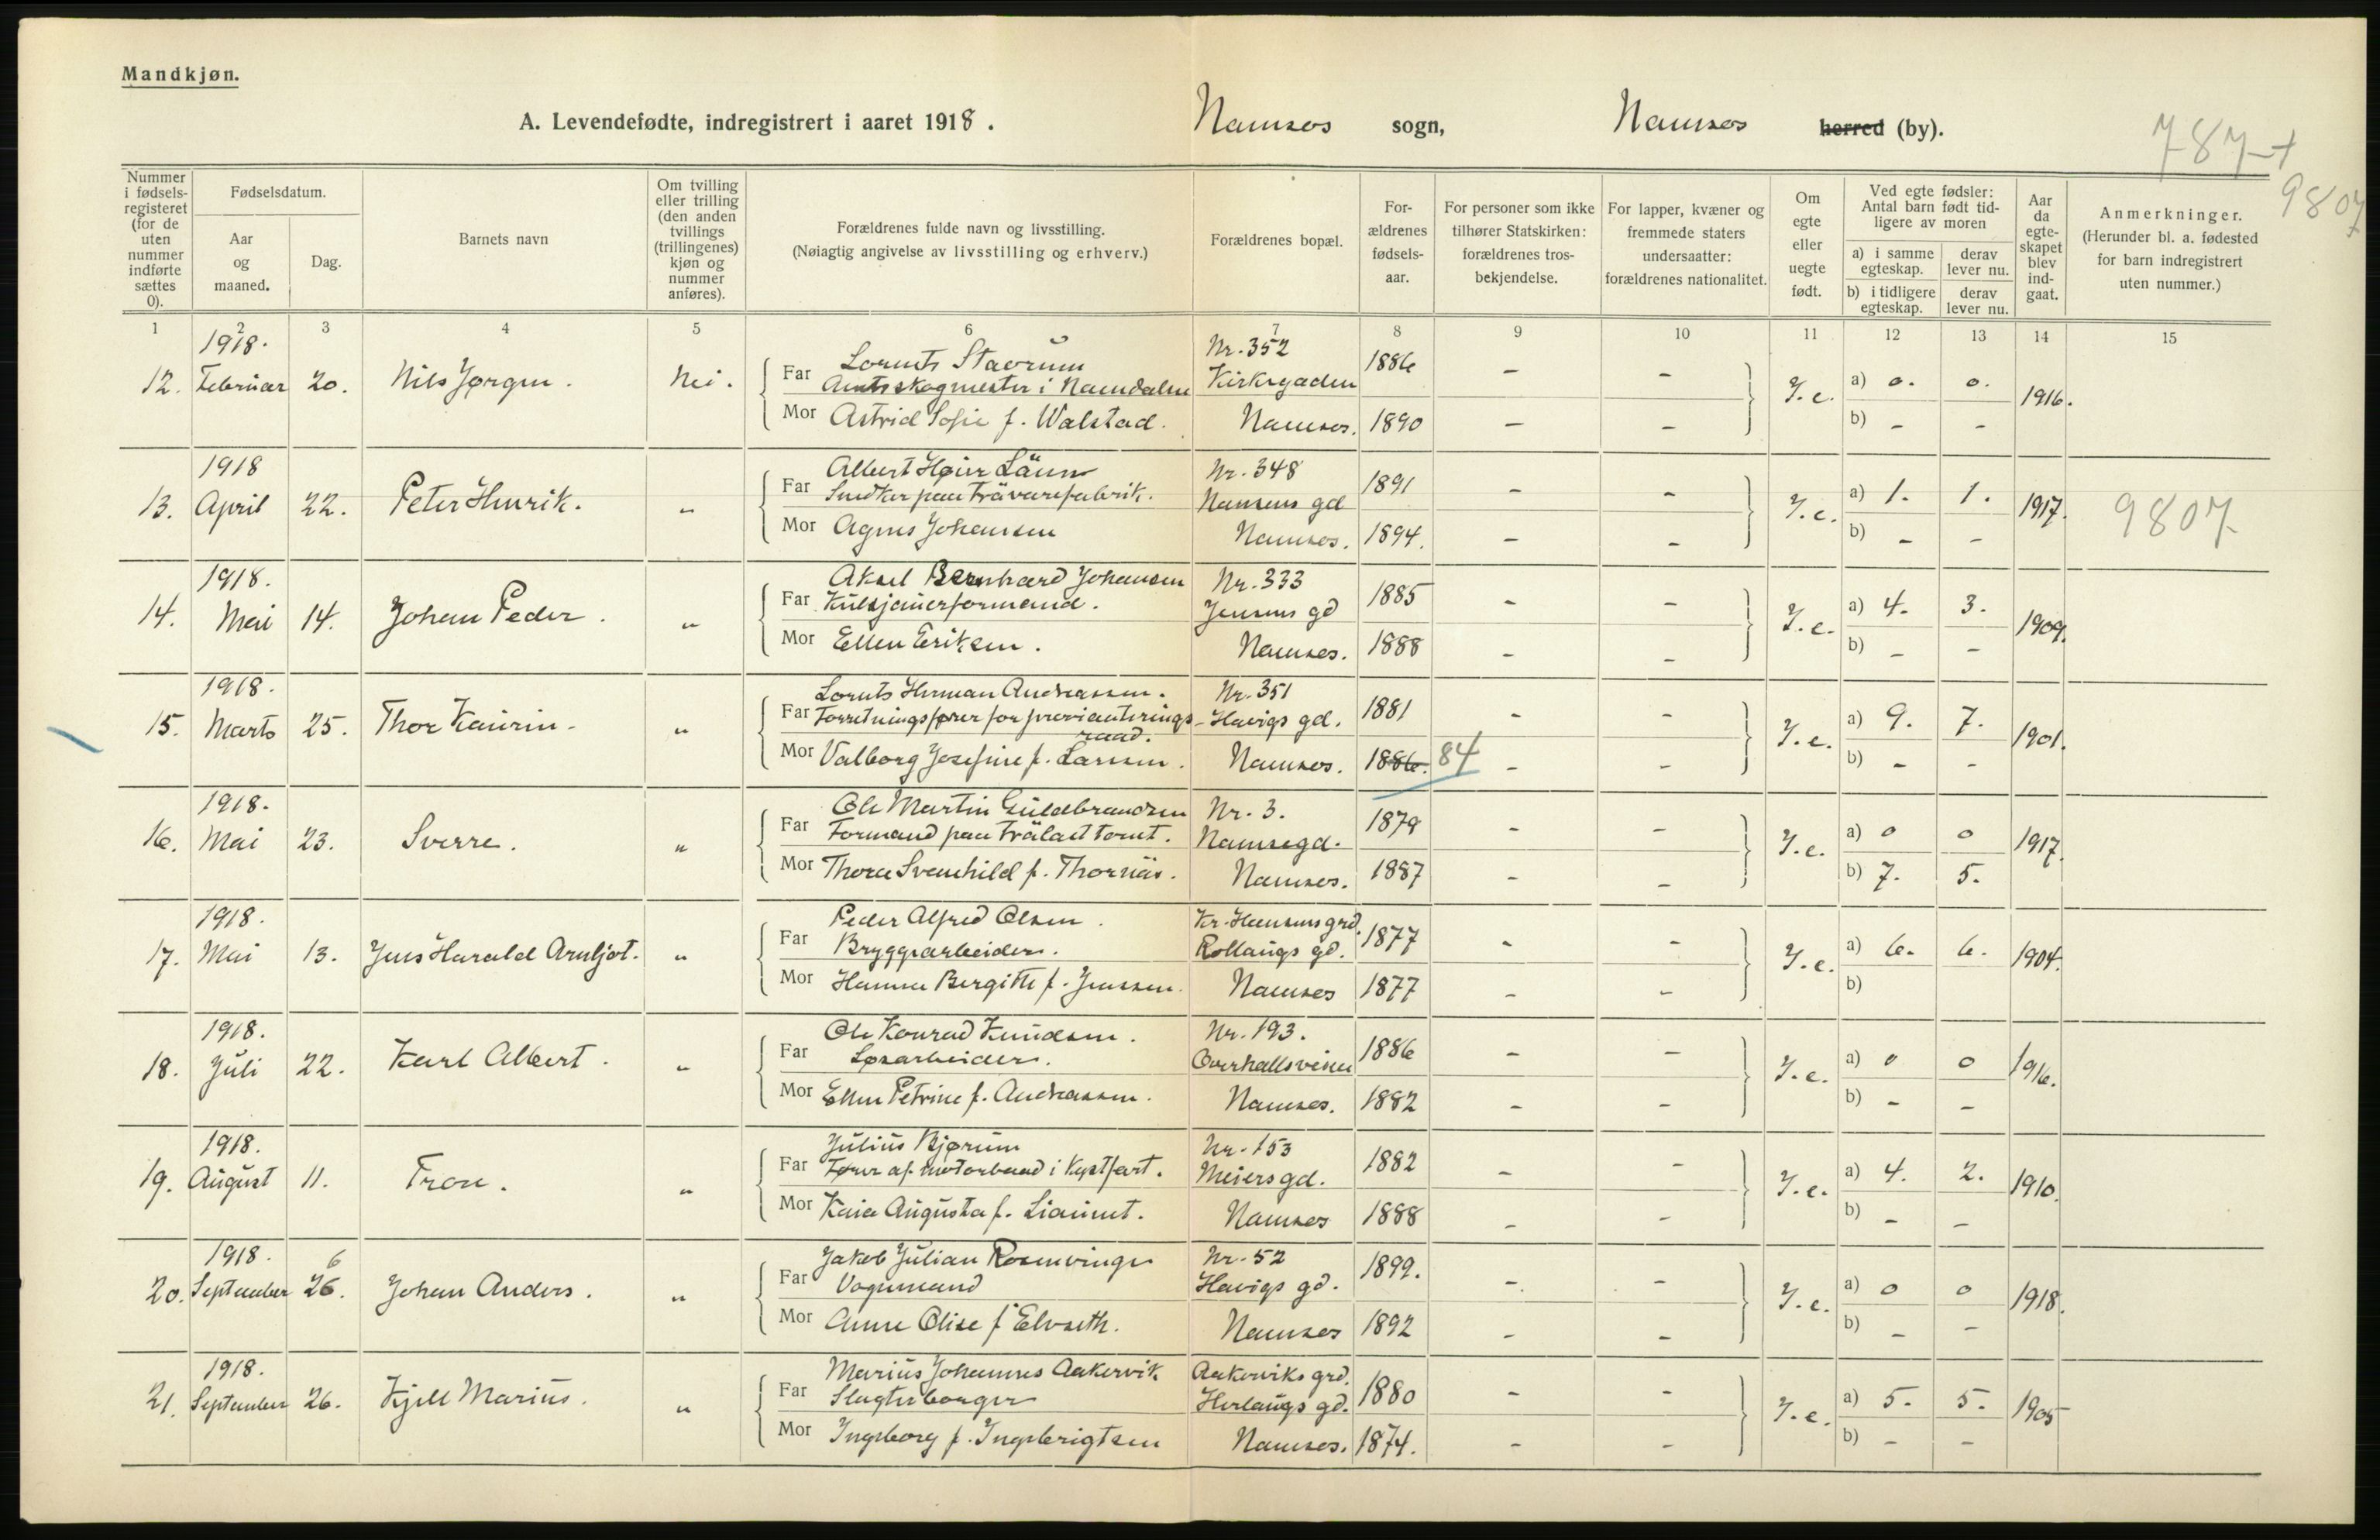 Mandkjøn.
A. Levendefødte, indregistrert i aaret 1918. Namsos sogn, Namsos herred (by).
787+
9807
Nummer i fødselsregisteret (for de uten nummer indførte sættes 0).
Fødselsdatum.
Aar og maaned.
Dag.
Barnets navn
Om tvilling eller trilling (den anden tvillings (trillingenes) kjøn og nummer anføres).
Forældrenes fulde navn og livsstilling.
(Nøiagtig angivelse av livsstilling og erhverv.)
Forældrenes bopæl.
Forældrenes fødselsaar.
For personer som ikke tilhører Statskirken: forældrenes trosbekjendelse.
For lapper, kvæner og fremmede staters undersaatter: forældrenes nationalitet.
Om egte eller uegte født.
Ved egte fødsler: Antal barn født tidligere av moren
a) i samme egteskap.
derav lever nu.
b) i tidligere egteskap.
derav lever nu.
Aar da egteskapet blev indgaat.
Anmerkninger.
(Herunder bl. a. fødested for barn indregistrert uten nummer.)
1 2 3 4 5 6 7 8 9 10 11 12 13 14 15
1918. Lornts Stavrum Nr. 352
12. Februar 20. Nils Jørgen. Nei. Far Amtsskogmester i Namdalen Kirkegaden 1886 - - J.e. a) 0. 0. 1916.
Mor Astrid Sofie f. Walstad. Namsos. 1890 - - b) - -
1918 Albert Høier Läun Nr. 348
13. April 22. Peter Henrik. " Far Snedker paa Trävarefabrik. Nansens gd 1891 - - J.e. a) 1. 1. 1917. 9807
Mor Agnes Johansen Namsos. 1894. - - b) - -
1918. Aksel Bernhard Johansen Nr. 333
14. Mai 14. Johan Peder. " Far Kulsjauerformand. Jensens gd 1885 - - J.e. a) 4. 3. 1909.
Mor Ellen Eriksen. Namsos. 1888 - - b) - -
1918. Lornts Herman Andreassen. Nr. 351
15. Marts 25. Thor Kaurin. " Far Forretningsfører for provianterings- Havigs gd. 1881 - - J.e. a) 9. 7. 1901.
raad.
Mor Valborg Josefine f. Larssen. Namsos. 1886. 84 - - b) - -
1918. Ole Martin Guldbrandsen Nr. 3.
16. Mai 23. Sverre. " Far Formand paa Trälasttomt. Namsegd. 1879 - - J.e. a) 0 0 1917.
Mor Thora Svanhild f. Thornäs. Namsos. 1887 - - b) 7. 5.
1918. Peder Alfred Olsen. Kr. Hansensgrd.
17. Mai 13. Jens Harald Arnljot. " Far Bryggearbeider. Rollaugs gd. 1877 - - J.e. a) 6. 6. 1904.
Mor Hanna Bergitte f. Jenssen. Namsos 1877 - - b)
1918. Ole Konrad Knudsen. Nr. 193.
18. Juli 22. Karl Albert. " Far Løsarbeider. Overhallsveien 1886 - - J.e. a) 0 0 1916.
Mor Ellen Petrine f. Andreassen. Namsos. 1882 - - b) - -
1918. Julius Bjørum Nr. 153
19. August 11. Tron. " Far Fører af motorbaad i Kystfart. Meiersgd. 1882 - - J.e. a) 4. 2. 1910.
Mor Kaia Augusta f. Namsos 1888 - - b) - -
1918. 6 Jakob Julian Rosenvinge Nr. 52
20. September 26. Johan Anders. " Far Vognmand Havigs gd. 1899. - - J.e. a) 0 0 1918.
Mor Anne Olise f Elvseth. Namsos 1892 - - b) - -
1918. Marius Johannes Aakervik Aakerviks grd.
21. September 26. Kjell Marius. " Far Slagterborger Herlaugs gd. 1880 - - J.e. a) 5. 5. 1905
Mor Ingeborg f. Ingebrigtsen Namsos. 1874. - - b) - -